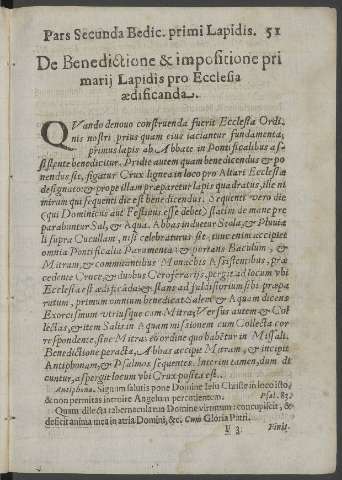 Pars Secunda Bedic. primi Lapidis. 51
De Benedictione & impositione pri
marij Lapidis pro Ecclesia
ædificanda.
QVando denouo construenda fuerit Ecclesia Ordi
nis nostri prius quam eius iaciantur fundamenta,
primus lapis ab Abbate in Pontificalibus as
sistente benedicitur. Pridie autem quam benedicendus & po
nendus sit, figatur Crux lignea in loco pro Altari Ecclesiæ
designato: & prope illam præparetur lapis quadratus, ille ni
mirum qui sequenti die est benedicendus. Sequenti vero die
(qui Dominicus aut Festiuus esse debet) statim de mane præ
parabuntur Sal, & Aqua. Abbas induetur Stola, & Pluuia
li supra Cucullam, nisi celebraturus sit, tunc enim accipiet
omnia Pontificalia Paramenta: & portans Baculum, &
Mitram, & comitantibus Monachis Assistentibus, præ
cedente Cruce, & duobus Ceroferarijs, pergit ad locum vbi
Ecclesia est ædificãda & stans ad faldistorium sibi præpa
ratum, primum omnium benedicat Salem & Aquam dicens
Exorcismum vtriusque cum Mitra; Versus autem & Col
lectas, & item Salis in Aquam missionem cum Collecta cor
respondente, sine Mitra: eo ordine quo habetur in Missali.
Benedictione peracta, Abbas accipit Mitram, & incipit
Antiphonam, & Psalmos sequentes. Interim tamen, dum di
cuntur, aspergit locum vbi Crux posita est.
Antiphona. Signum salutis pone Domine Iesu Christe in loco isto,
& non permitas introire Angelum percutientem. Psal. 83.
Quam dilecta tabernacula tua Domine virtutum: concupiscit, &
deficit anima mea in atria Domini, &c. Cum Gloria Patri.
F 3. Finit.